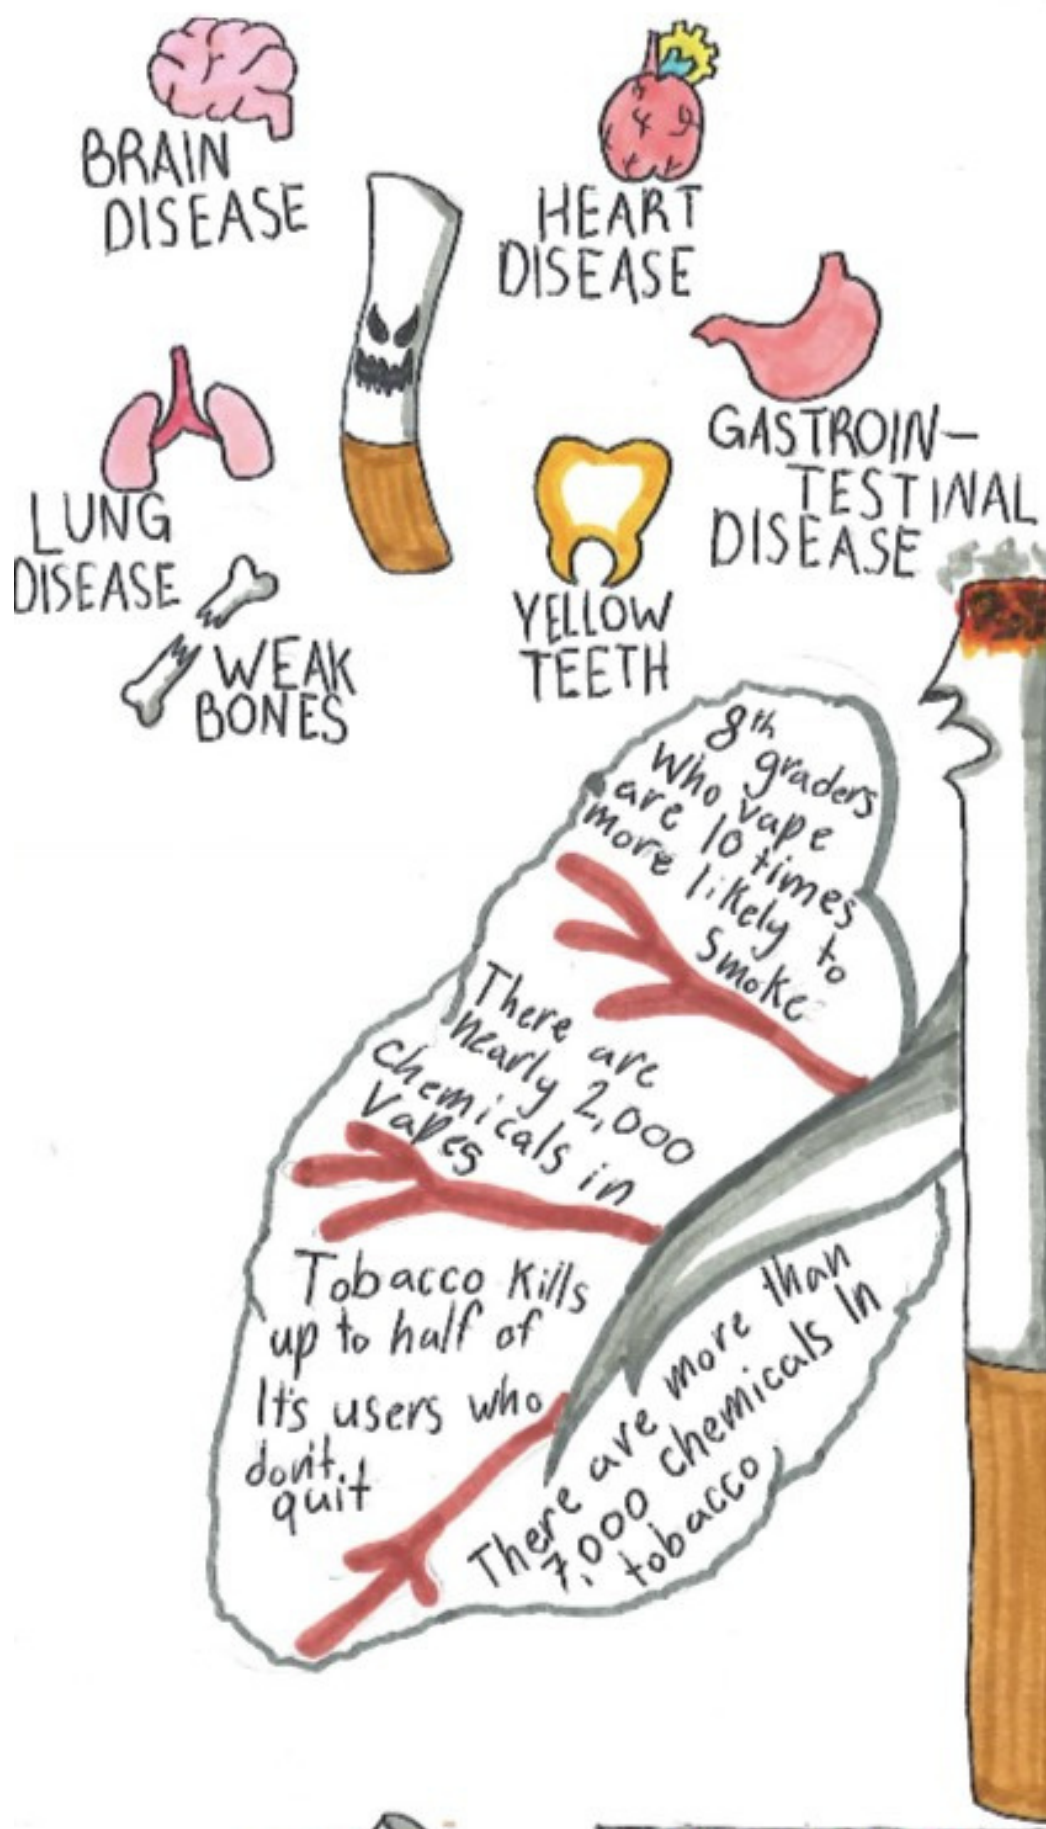 BRAIN
DISEASE
HEART
DISEASE
GASTROIN-
TESTINAL
DISEASE
LUNG
DISEASE
WEAK
BONES
YELLOW
TEETH
8th
graders
Who vape
are 10 times
more likely to
smoke
There are
nearly 2,000
chemicals in
Vapes
Tobacco Kills
up to half of
It's users who
don't
quit
There are more than
7,000 chemicals In
tobacco